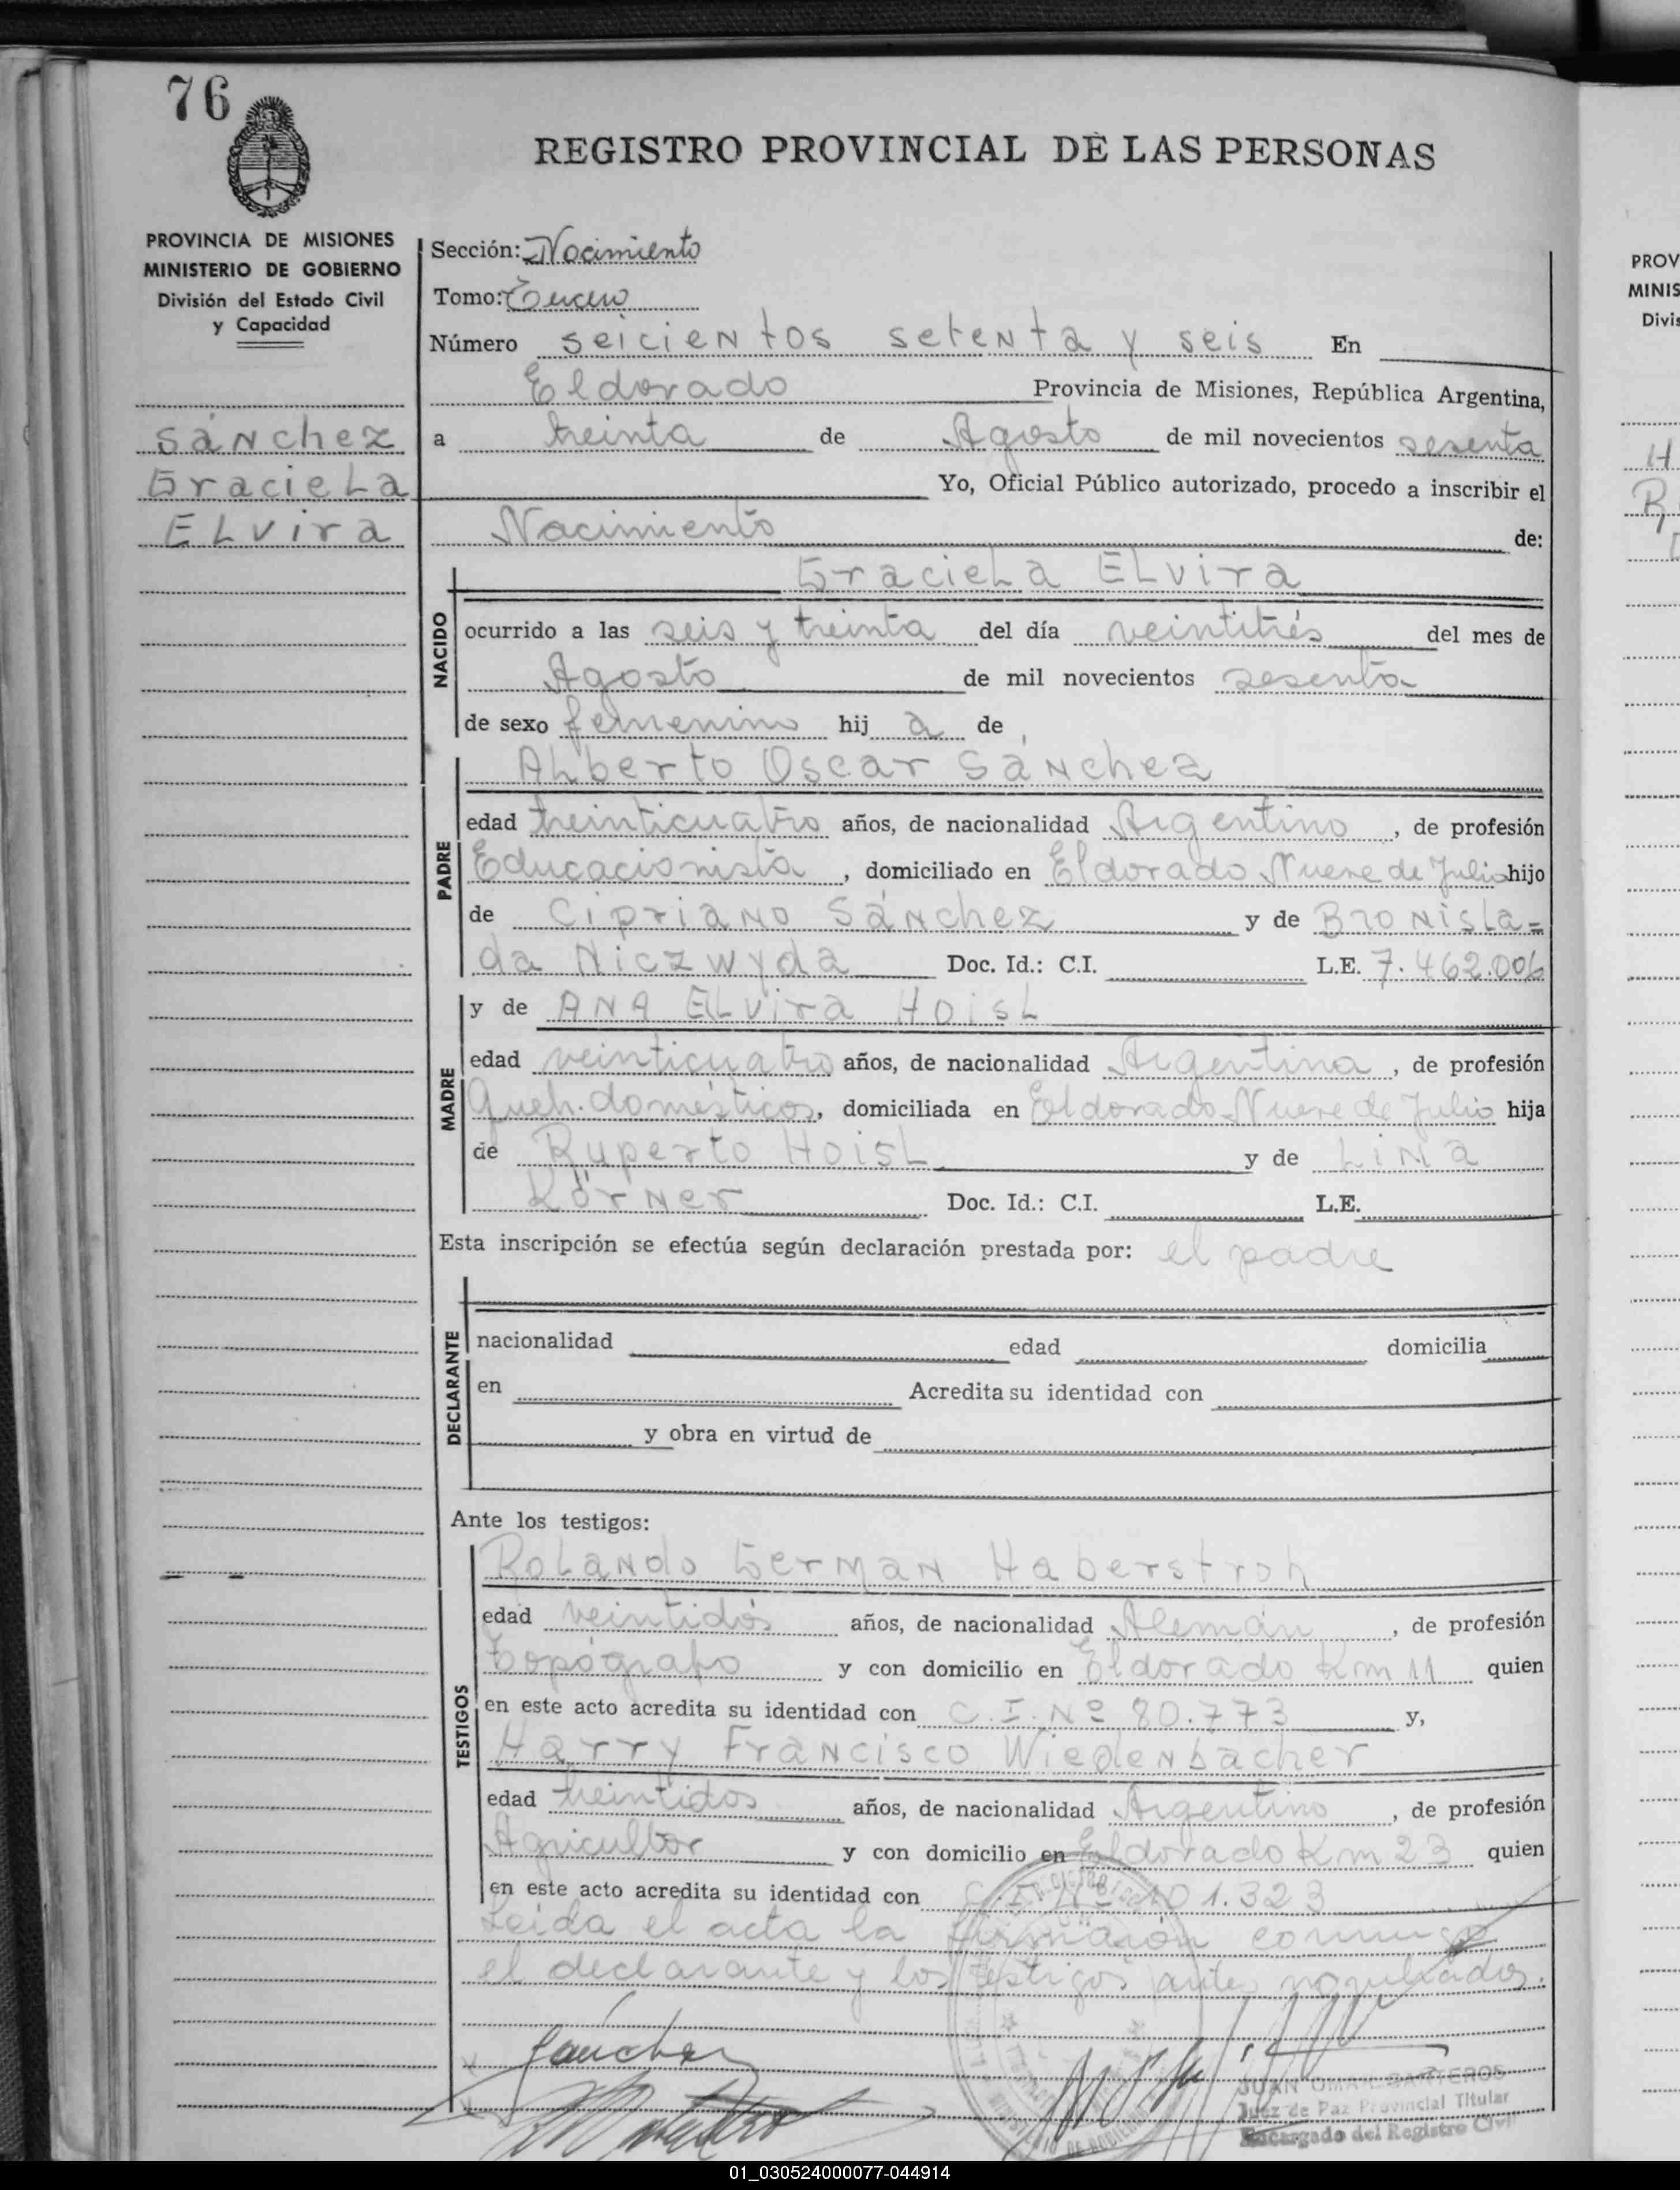 76
REGISTRO PROVINCIAL DE LAS PERSONAS
PROVINCIA DE MISIONES
MINISTERIO DE GOBIERNO
División del Estado Civil
y Capacidad
Sánchez
Graciela
Elvira
Sección: Nacimiento
Tomo: Tercero
Número seicientos setenta y seis En
Eldorado Provincia de Misiones, República Argentina,
a treinta de Agosto de mil novecientos sesenta
Yo, Oficial Público autorizado, procedo a inscribir el
Nacimiento de:
NACIDO
Graciela Elvira
ocurrido a las seis y treinta del día veintitrés del mes de
Agosto de mil novecientos sesenta
de sexo femenino hij a de
PADRE
Alberto Oscar Sánchez
edad treinticuatro años, de nacionalidad Argentino, de profesión
Educacionista, domiciliado en Eldorado Nueve de Julio hijo
de Cipriano Sánchez y de Bronisla=
da Niczwyda Doc. Id.: C.I. L.E. 7.462.006
MADRE
y de Ana Elvira Hoisl
edad veinticuatro años, de nacionalidad Argentina, de profesión
Queh. domésticos, domiciliada en Eldorado Nueve de Julio hija
de Ruperto Hoisl y de Lina
Körner Doc. Id.: C.I. L.E.
Esta inscripción se efectúa según declaración prestada por: el padre
DECLARANTE
nacionalidad edad domicilia
en Acredita su identidad con
y obra en virtud de
Ante los testigos:
TESTIGOS
Rolando German Haberstroh
edad veintidós años, de nacionalidad Alemán, de profesión
topógrafo y con domicilio en Eldorado Km 11 quien
en este acto acredita su identidad con C.I. Nº 80.773 y,
Harry Francisco Wiedenbacher
edad treintidos años, de nacionalidad Argentino, de profesión
Agricultor y con domicilio en Eldorado Km 23 quien
en este acto acredita su identidad con C.I. Nº 101.323
Leida el acta la firmaron conmigo
el declarante y los testigos ante nombrados.
Sánchez
JUAN OMAR
Juez de Paz Provincial Titular
Encargado del Registro Civil
PROV
MINIS
Divis
01_030524000077-044914